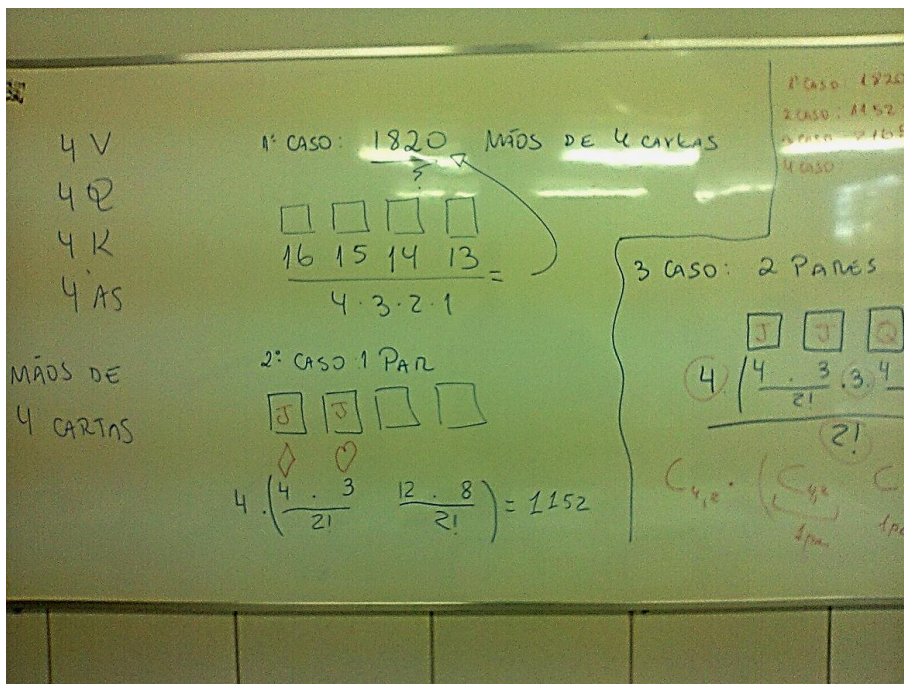 4 V
4 Q
4 K
4 ÀS
MÃOS DE
4 CARTAS
1º CASO: 1820 MÃOS DE 4 CARTAS
16 15 14 13 =
4 · 3 · 2 · 1
2º CASO 1 PAR
J J
4 · (4 · 3 / 2! 12 · 8 / 2!) = 1152
1º CASO: 1820
2 CASO: 1152
4 CASO:
3 CASO: 2 PARES
J J Q
4 (4 · 3 / 2! · 3 · 4
2!
C4,2 · (C4,2 C
1 par